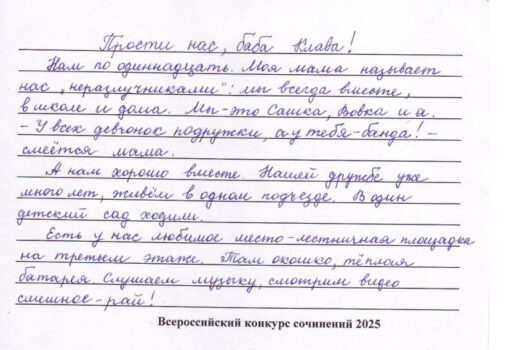 Прости нас, баба Клава!
Нам по одиннадцать. Моя мама называет
нас „неразлучниками": мы всегда вместе,
в школе и дома. Мы - это Сашка, Вовка и я.
- У всех девчонок подружки, а у тебя - банда! -
смеётся мама.
А нам хорошо вместе. Нашей дружбе уже
много лет, живём в одном подъезде. В один
детский сад ходили.
Есть у нас любимое место - лестничная площадка
на третьем этаже. Там окошко, тёплая
батарея. Слушаем музыку, смотрим видео
смешное - рай!
Всероссийский конкурс сочинений 2025